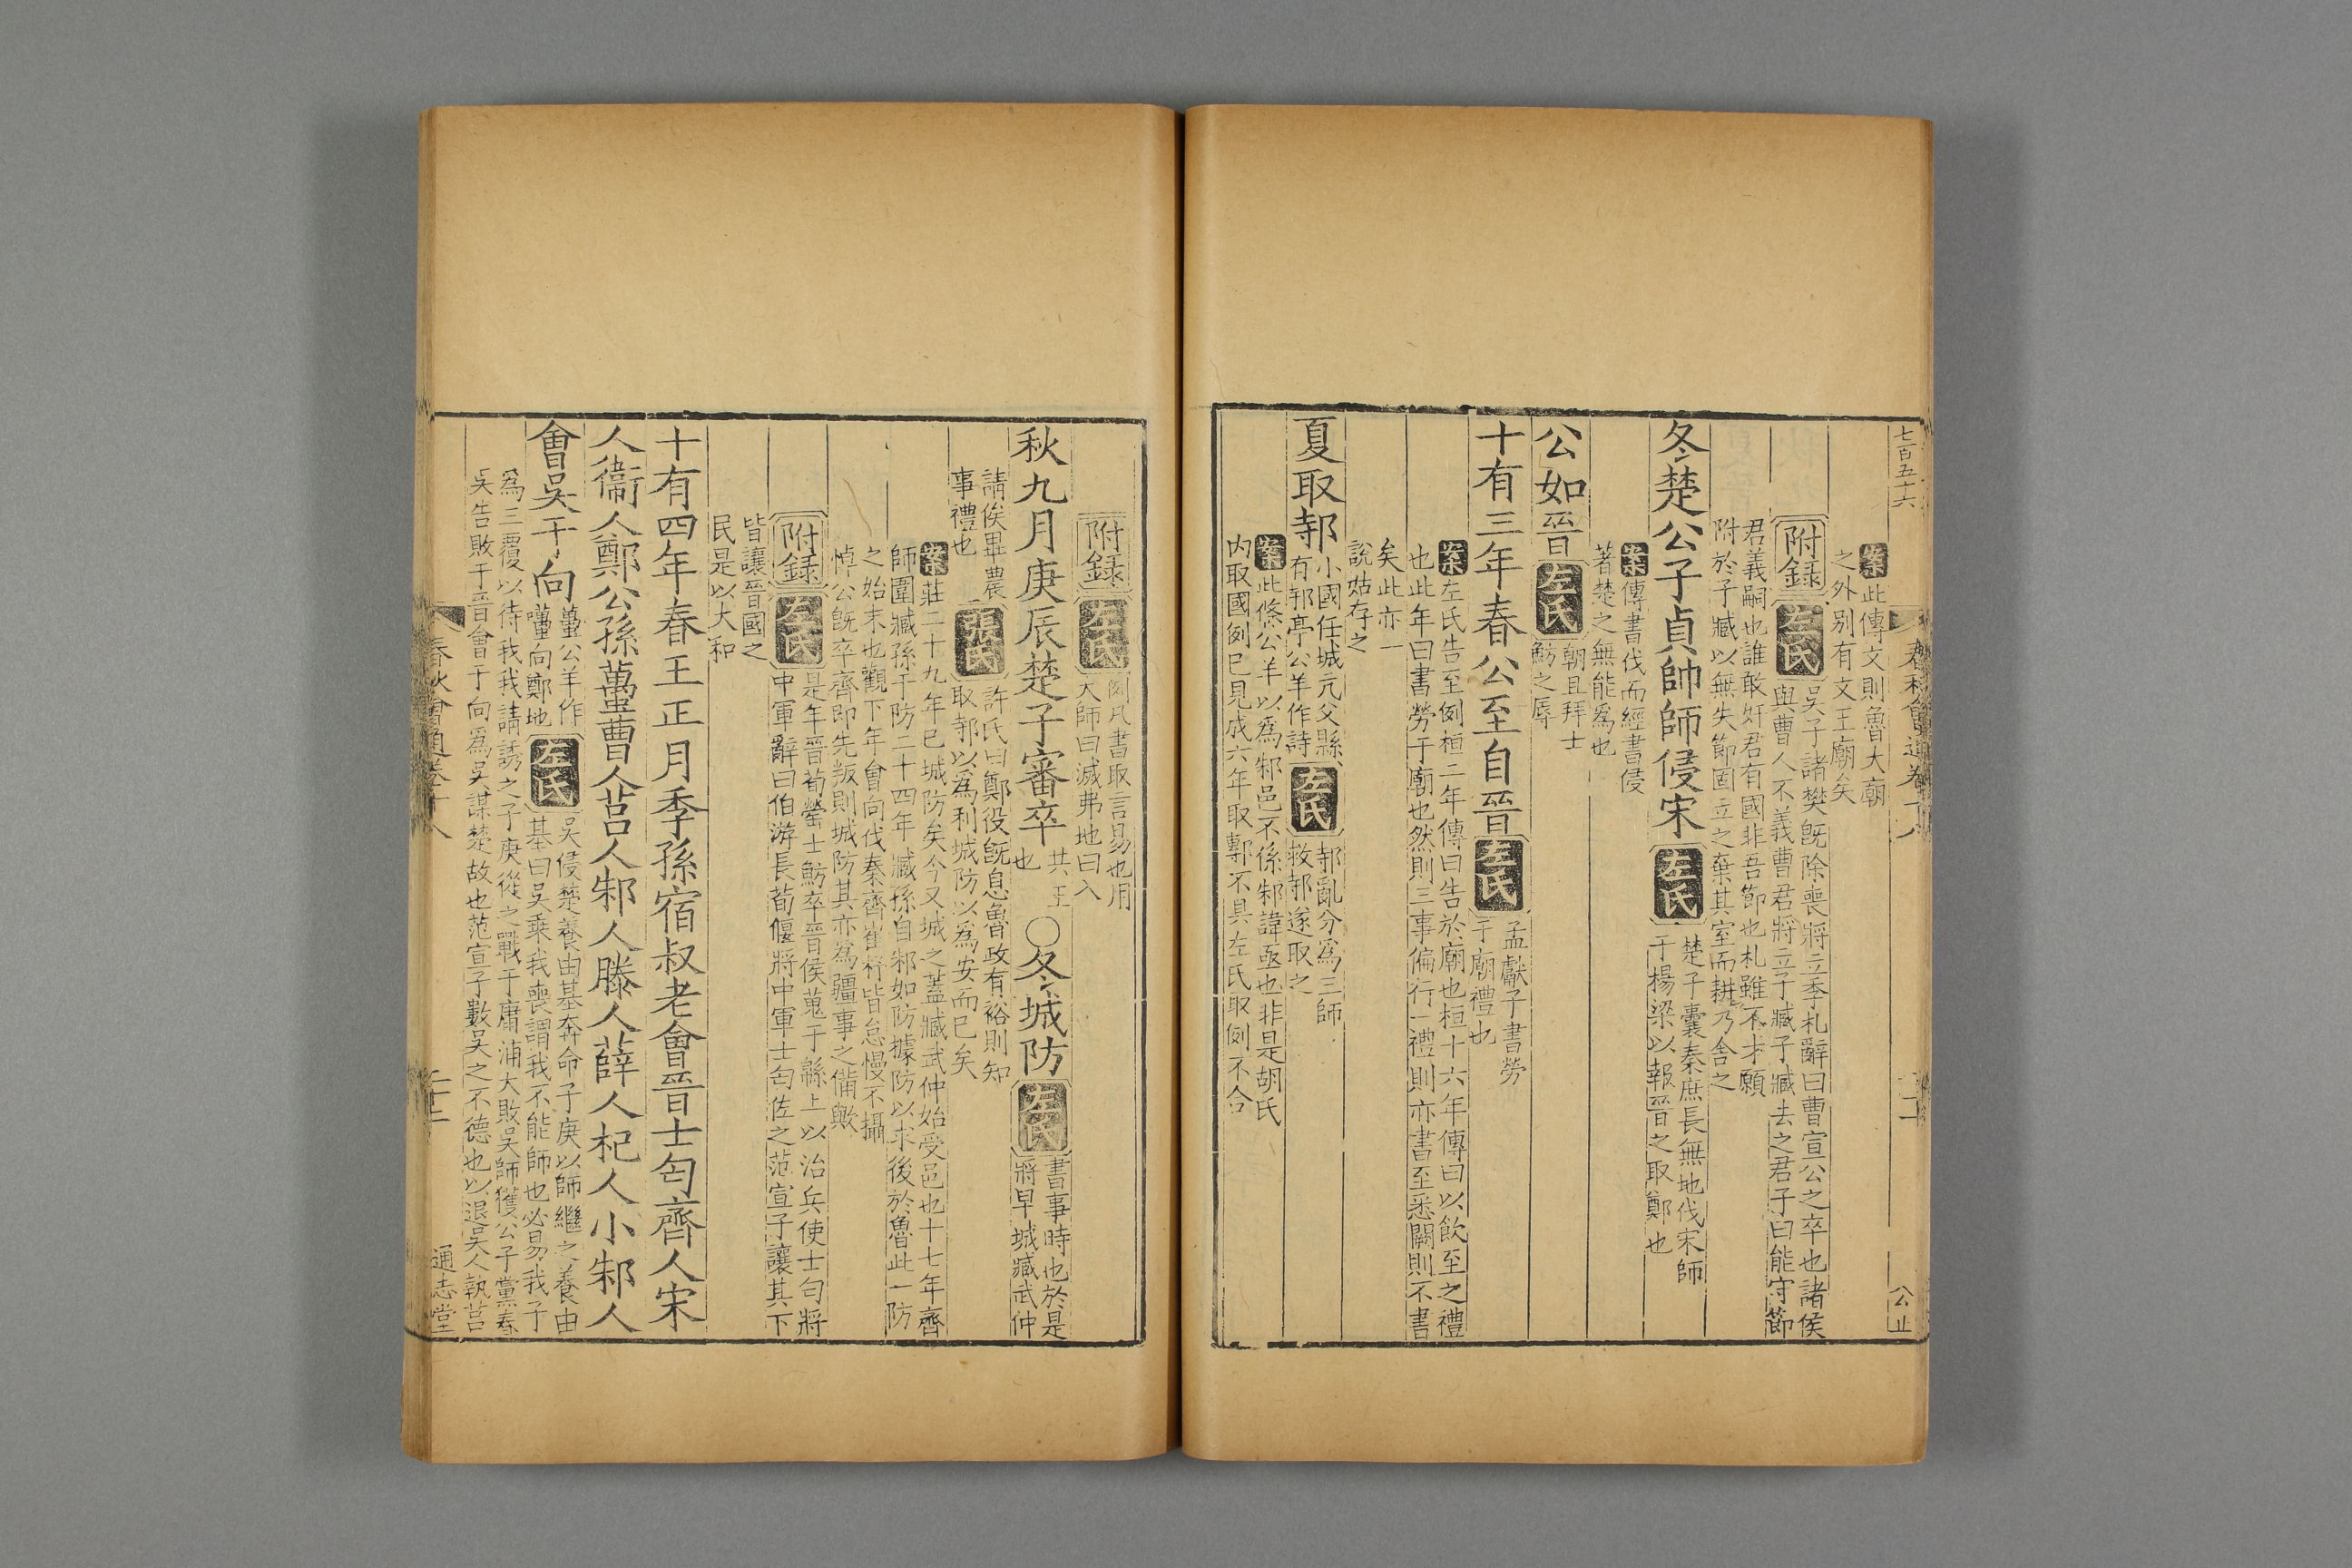 七百五十六
春秋會通卷十八
二十二
公止
案此傳文則魯大廟
之外別有文王廟矣
附錄 左氏 吳子諸樊旣除喪將立季札辭曰曹宣公之卒也諸侯
與曹人不義曹君將立子臧子臧去之君子曰能守節
君義嗣也誰敢奸君有國非吾節也札雖不才願
附於子臧以無失節固立之棄其室而耕乃舍之
冬楚公子貞帥師侵宋 左氏 楚子囊秦庶長無地伐宋師
于楊梁以報晉之取鄭也
案傳書伐而經書侵
著楚之無能爲也
公如晉 左氏 朝且拜士
魴之辱
十有三年春公至自晉 左氏 孟獻子書勞
于廟禮也
案左氏告至例桓二年傳曰告於廟也桓十六年傳曰以飲至之禮
也此年曰書勞于廟也然則三事偏行一禮則亦書至悉闕則不書
矣此亦一
說姑存之
夏取邿 小國任城亢父縣
有邿亭公羊作詩 左氏 邿亂分爲三師
救邿遂取之
案此條公羊以爲邾邑不係邾諱亟也非是胡氏
内取國例已見成六年取鄟不具左氏取例不合
附錄 左氏 例凡書取言易也用
大師曰滅弗地曰入
秋九月庚辰楚子審卒 共王
也 ○冬城防 左氏 書事時也於是
將早城臧武仲
請俟畢農
事禮也 張氏 許氏曰鄭役旣息魯政有裕則知
取邿以爲利城防以爲安而已矣
案莊二十九年已城防矣今又城之蓋臧武仲始受邑也十七年齊
師圍臧孫于防二十四年臧孫自邾如防據防以求後於魯此一防
之始末也觀下年會向伐秦齊崔杼皆怠慢不攝
悼公旣卒齊即先叛則城防其亦爲疆事之備歟
附錄 左氏 是年晉荀罃士魴卒晉侯蒐于緜上以治兵使士匄將
中軍辭曰伯游長荀偃將中軍士匄佐之范宣子讓其下
皆讓晉國之
民是以大和
十有四年春王正月季孫宿叔老會晉士匄齊人宋
人衞人鄭公孫蠆曹人莒人邾人滕人薛人杞人小邾人
會吳于向 蠆公羊作
囆向鄭地 左氏 吳侵楚養由基奔命子庚以師繼之養由
基曰吳乘我喪謂我不能師也必易我子
爲三覆以待我我請誘之子庚從之戰于庸浦大敗吳師獲公子黨春
吳告敗于晉會于向爲吳謀楚故也范宣子數吳之不德也以退吳人執莒
春秋會通卷十八
二十二
通志堂